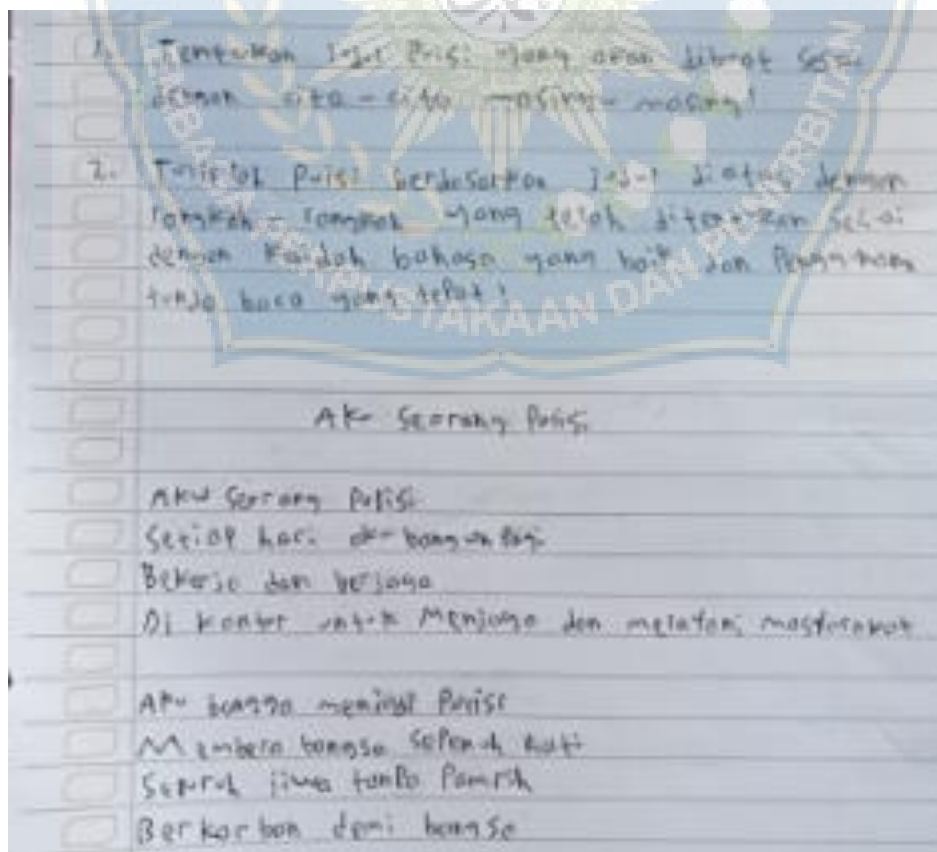 1. Tentukan Judul Puisi yang akan dibuat sesuai
dengan cita-cita masing-masing!
2. Tulislah Puisi berdasarkan Judul diatas dengan
langkah-langkah yang telah ditentukan sesuai
dengan kaidah bahasa yang baik dan Penggunaan
tanda baca yang tepat!
PUSTAKAAN DAN PENERBITAN
Aku Seorang Polisi
Aku Seorang Polisi
Setiap hari aku bangun Pagi
Bekerja dan berjaga
Di kantor untuk Menjaga dan melayani masyarakat
Aku bangga menjadi Polisi
Membela bangsa sepenuh hati
Seluruh jiwa tanpa Pamrih
Berkorban demi bangsa